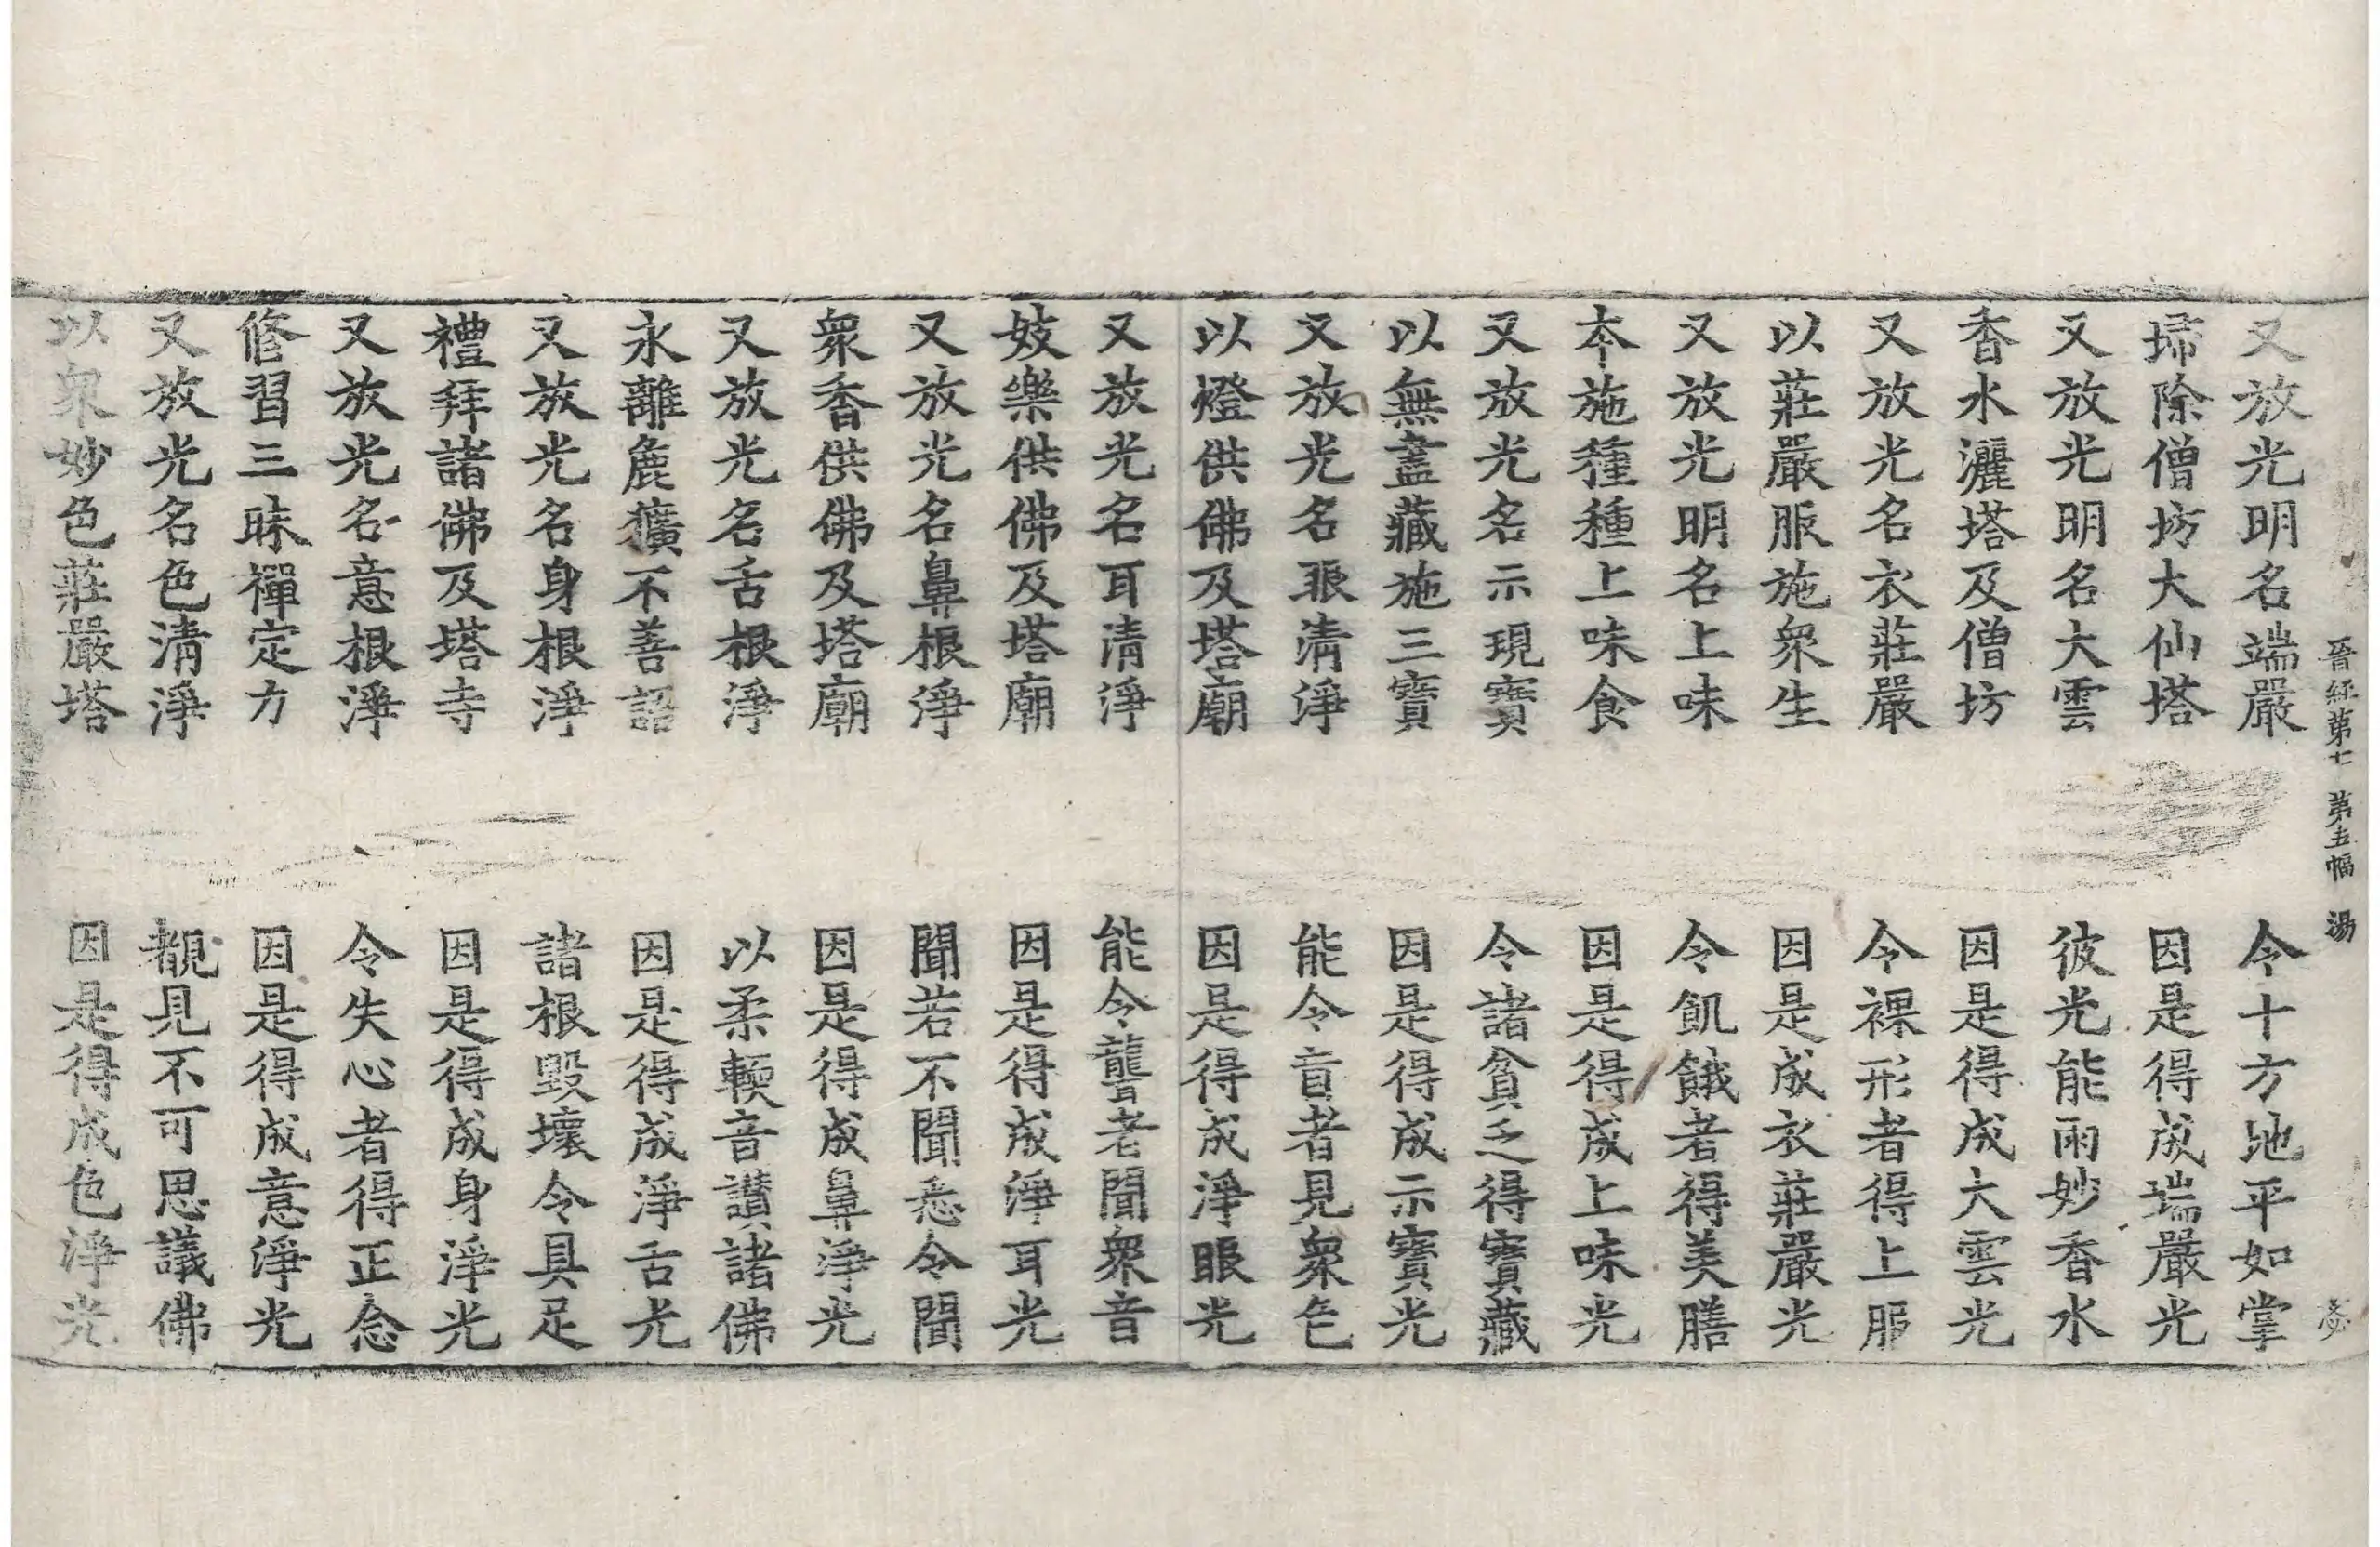 晉經第七 第五幅 湯
又放光明名端嚴 令十方地平如掌
埽除僧坊大仙塔 因是得成端嚴光
又放光明名大雲 彼光能雨妙香水
香水灑塔及僧坊 因是得成大雲光
又放光名衣莊嚴 令裸形者得上服
以莊嚴服施衆生 因是成衣莊嚴光
又放光明名上味 令飢餓者得美膳
本施種種上味食 因是得成上味光
又放光名示現寶 令諸貧乏得寶藏
以無盡藏施三寶 因是得成示寶光
又放光名眼清淨 能令盲者見衆色
以燈供佛及塔廟 因是得成淨眼光
又放光名耳清淨 能令聾者聞衆音
妓樂供佛及塔廟 因是得成淨耳光
又放光名鼻根淨 聞若不聞悉令聞
衆香供佛及塔廟 因是得成鼻淨光
又放光名舌根淨 以柔輭音讃諸佛
永離麁獷不善語 因是得成淨舌光
又放光名身根淨 諸根毀壞令具足
禮拜諸佛及塔寺 因是得成身淨光
又放光名意根淨 令失心者得正念
修習三昧禪定力 因是得成意淨光
又放光名色清淨 覩見不可思議佛
以衆妙色莊嚴塔 因是得成色淨光